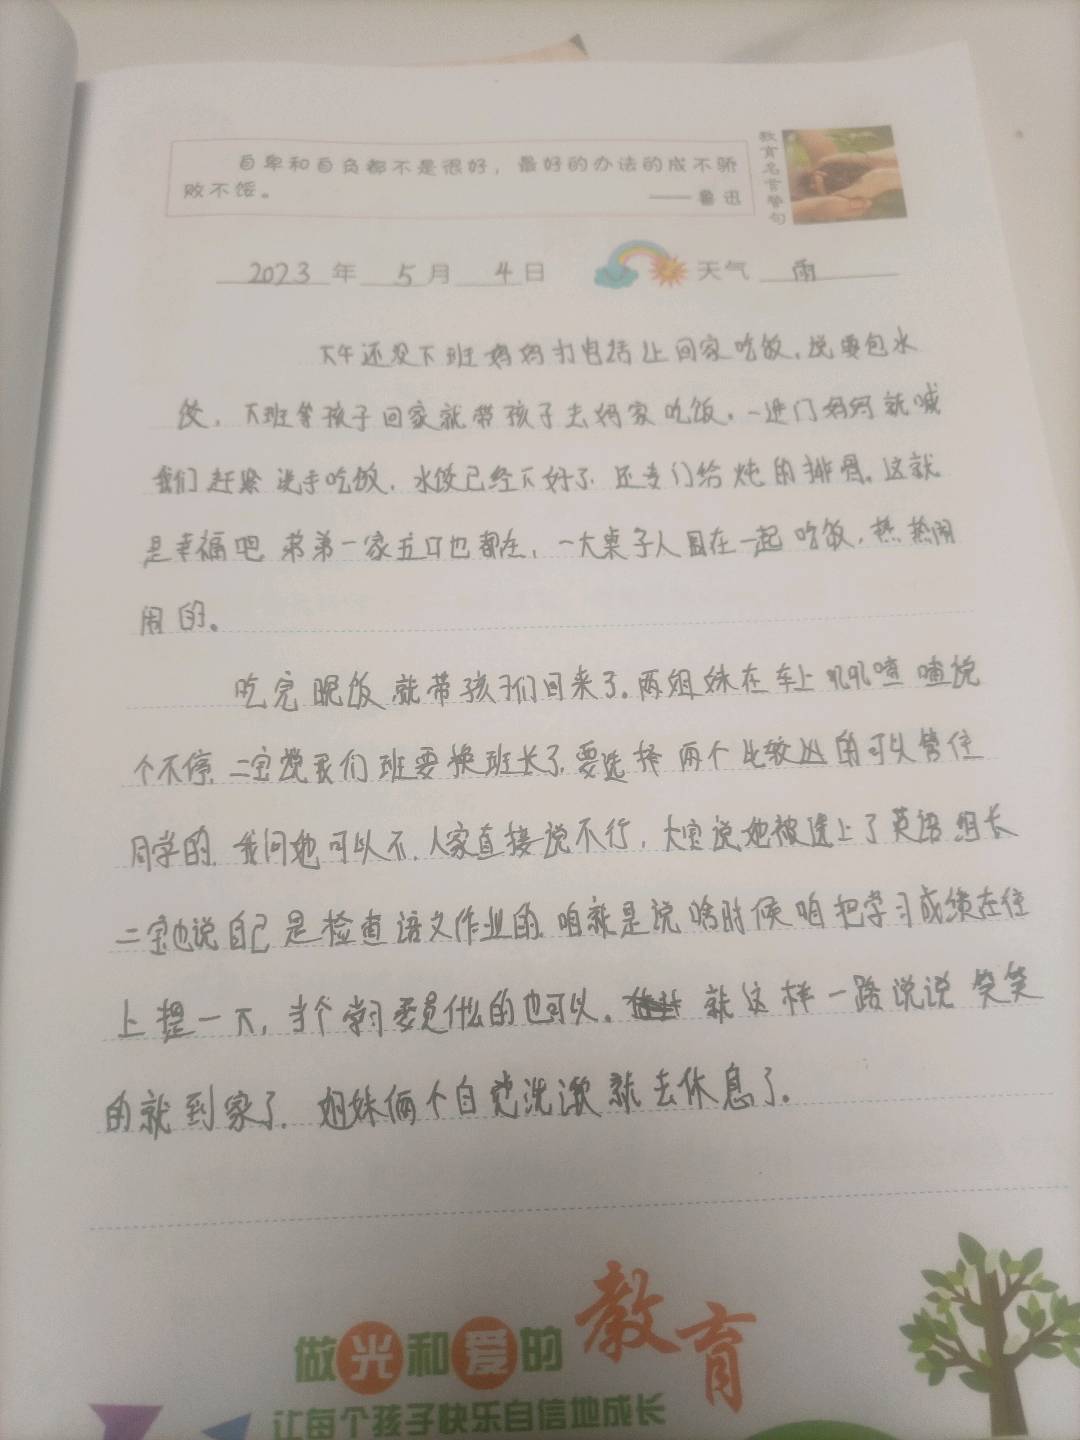 自卑和自负都不是很好，最好的办法的成不骄
败不馁。
——鲁迅
教育名言警句
2023年 5月 4日 天气 雨
下午还没下班妈妈打电话让回家吃饭，说要包水
饺，下班等孩子回家就带孩子去妈家吃饭，一进门妈妈就喊
我们赶紧洗手吃饭，水饺已经下好了，还专门给炖的排骨。这就
是幸福吧 弟弟一家五口也都在，一大桌子人围在一起吃饭，热热闹
闹的。
吃完晚饭就带孩子们回来了。两姐妹在车上叽叽喳喳说
个不停，二宝说我们班要换班长了，要选择两个比较凶的可以管住
同学的，我问她可以不，人家直接说不行，大宝说她被选上了英语组长
二宝也说自己是检查语文作业的，咱就是说啥时候咱把学习成绩在往
上提一下，当个学习委员什么的也可以。就这样一路说说笑笑
的就到家了，姐妹俩个自己洗漱就去休息了。
做光和爱的教育
让每个孩子快乐自信地成长